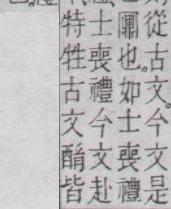 從古文。今文是
也。如士喪禮
士喪禮今文赴
特牲古文酳皆